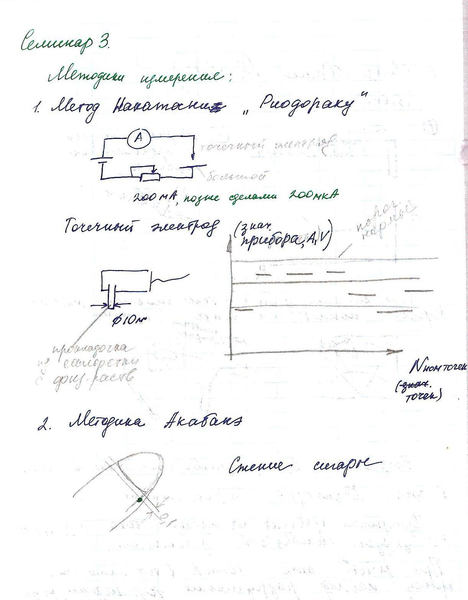 Семинар 3.
Методики измерения:
1. Метод Накатани „Риодораку"
A
точечный электрод
большой
200 мА, позже сделали 200 мкА
Точечный электрод
(знач.
прибора, A, V)
полоса
нормы
ф10м
прокладочка
физ. раств
N ном точек
(знач.
точек)
2. Методика Акабанэ
Стение сигары